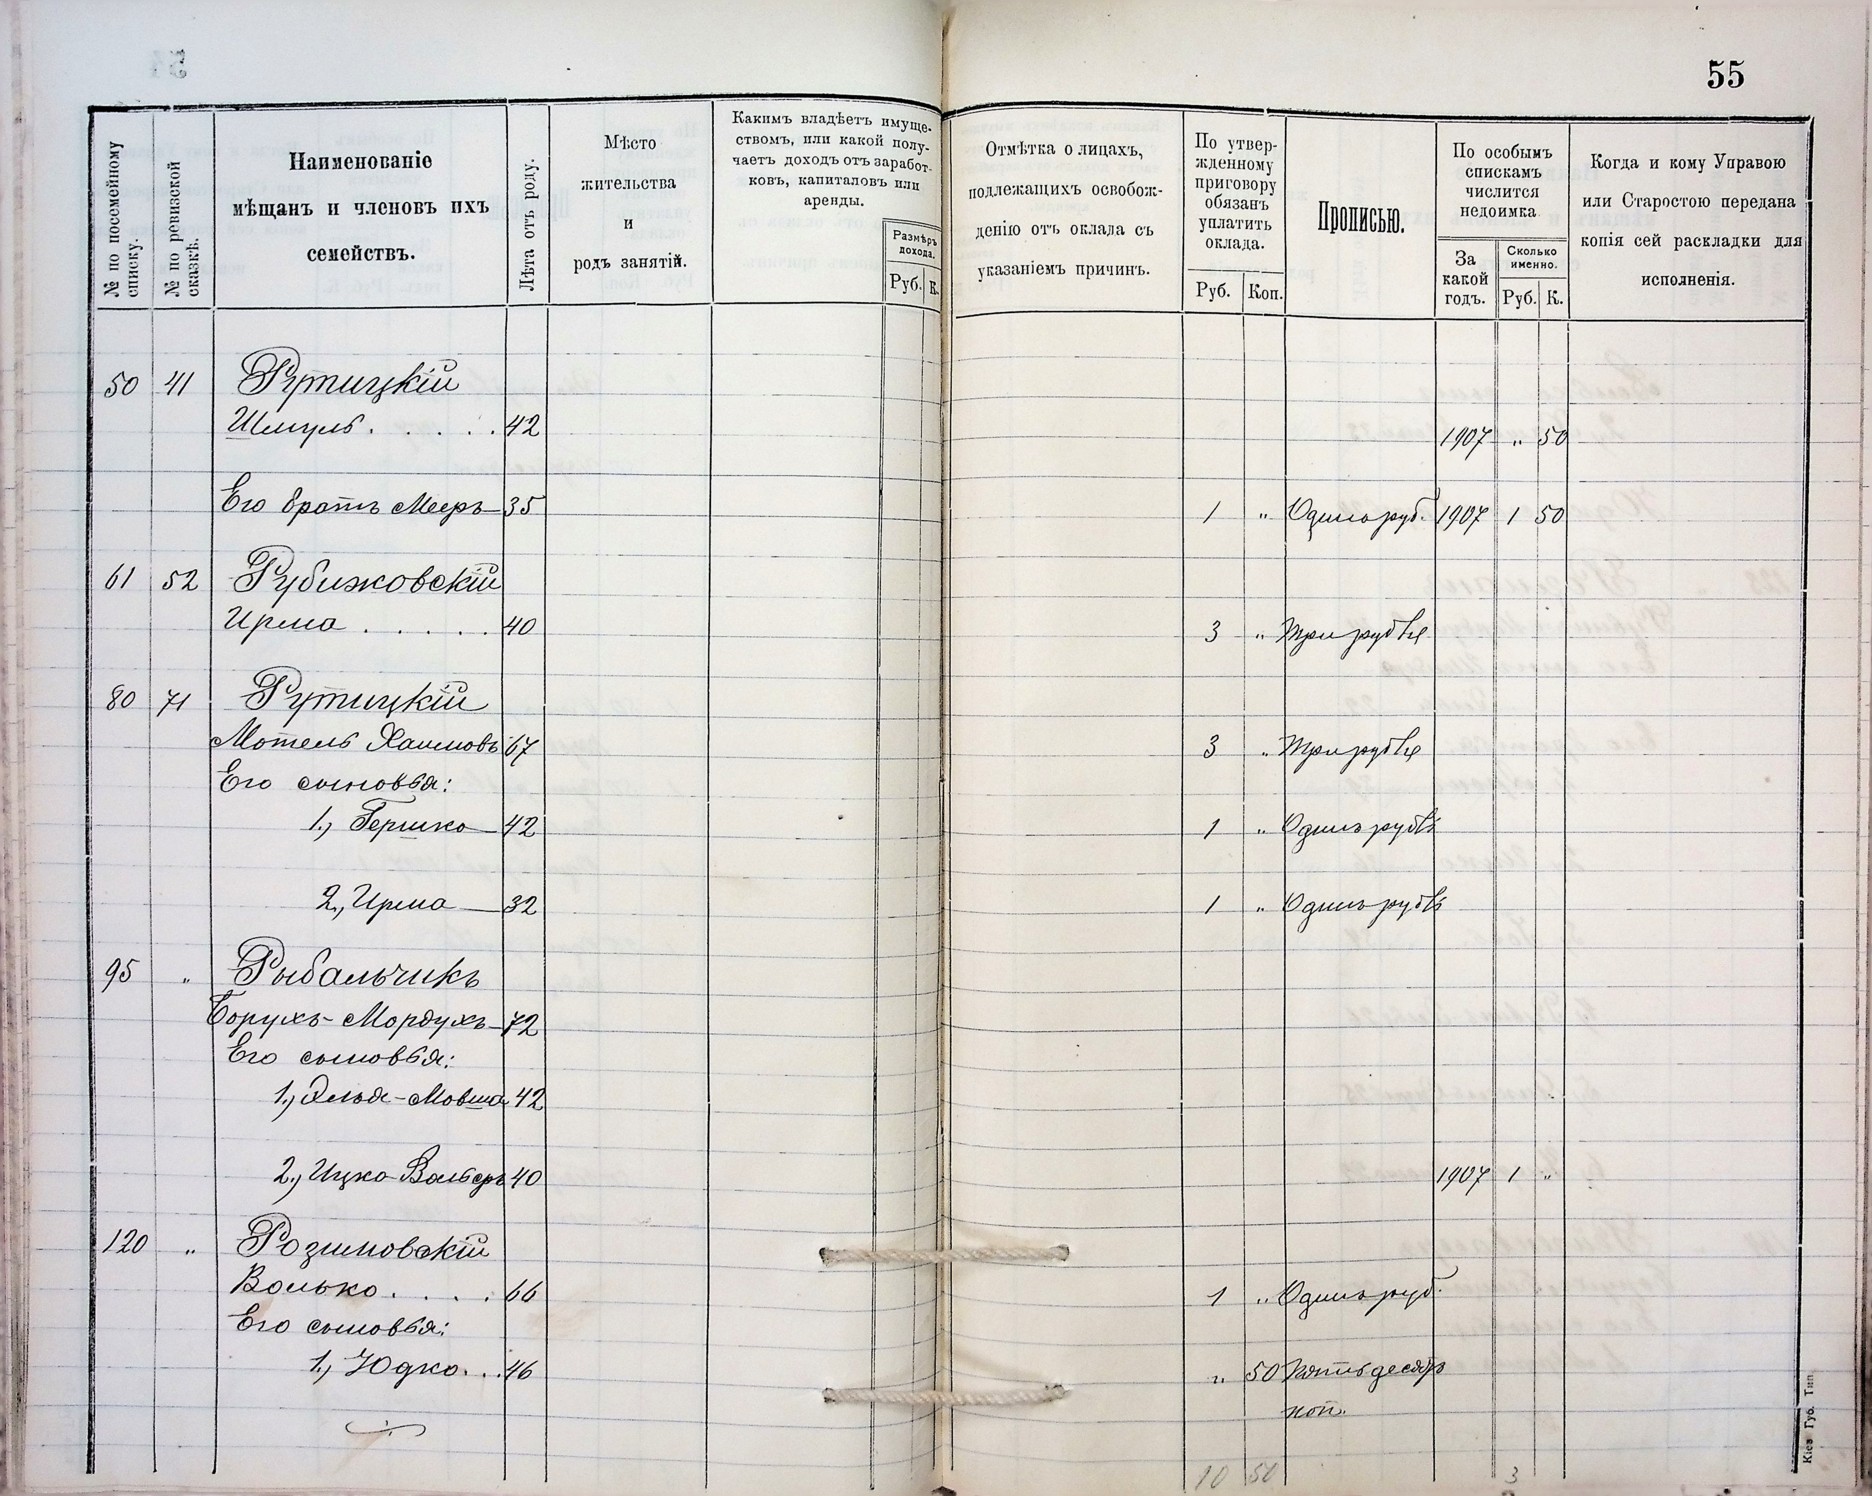 55
№ по посемейному списку.
№ по ревизской сказкѣ.
Наименованіе
мѣщанъ и членовъ ихъ
семействъ.
Лѣта отъ роду.
Мѣсто
жительства
и
родъ занятій.
Какимъ владѣетъ имуще-
ствомъ, или какой полу-
чаетъ доходъ отъ заработ-
ковъ, капиталовъ или
аренды.
Размѣръ
дохода.
Руб. К.
Отмѣтка о лицахъ,
подлежащихъ освобож-
денію отъ оклада съ
указаніемъ причинъ.
По утвер-
жденному
приговору
обязанъ
уплатить
оклада.
Руб. Коп.
Прописью.
По особымъ
спискамъ
числится
недоимка
За
какой
годъ.
Сколько
именно.
Руб. К.
Когда и кому Управою
или Старостою передана
копія сей раскладки для
исполненія.
50 41 Рутицкій
Шмуль . . . . . 42 1907 " 50
Его братъ Мееръ 35 1 " Одинъ руб. 1907 1 50
61 52 Рубижовскій
Ирма . . . . . 40 3 " Три рубля
80 71 Рутицкій
Мотель Хаимовъ 67 3 " Три рубля
Его сыновья:
1., Гершко 42 1 " Одинъ рубль
2., Ирма 32 1 " Одинъ рубль
95 " Рыбальчикъ
Борухъ-Мордухъ 72
Его сыновья:
1., Эльья-Мовша 42
2., Ицко-Вольеръ 40 1907 1 "
120 " Розимовскій
Волько . . . . 66 1 " Одинъ руб.
Его сыновья:
1., Юдко . . . 46 " 50 Пятьдесятъ
коп.
10 50 3
Кіев Губ. Тип.